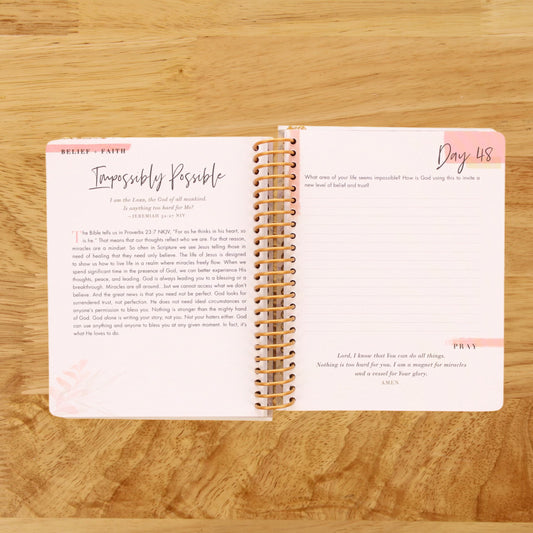 BELIEF + FAITH
Impossibly Possible
I am the LORD, the God of all mankind.
Is anything too hard for Me?
—JEREMIAH 32:27 NIV
The Bible tells us in Proverbs 23:7 NKJV, "For as he thinks in his heart, so
is he." That means that our thoughts reflect who we are. For that reason,
miracles are a mindset. So often in Scripture we see Jesus telling those in
need of healing that they need only believe. The life of Jesus is designed
to show us how to live life in a realm where miracles freely flow. When we
spend significant time in the presence of God, we can better experience His
thoughts, peace, and leading. God is always leading you to a blessing or a
breakthrough. Miracles are all around...but we cannot access what we don't
believe. And the great news is that you need not be perfect. God looks for
surrendered trust, not perfection. He does not need ideal circumstances or
anyone's permission to bless you. Nothing is stronger than the mighty hand
of God. God alone is writing your story, not you. Not your haters either. God
can use anything and anyone to bless you at any given moment. In fact, it's
what He loves to do.
Day 48
What area of your life seems impossible? How is God using this to invite a
new level of belief and trust?
PRAY
Lord, I know that You can do all things.
Nothing is too hard for you. I am a magnet for miracles
and a vessel for Your glory.
AMEN.